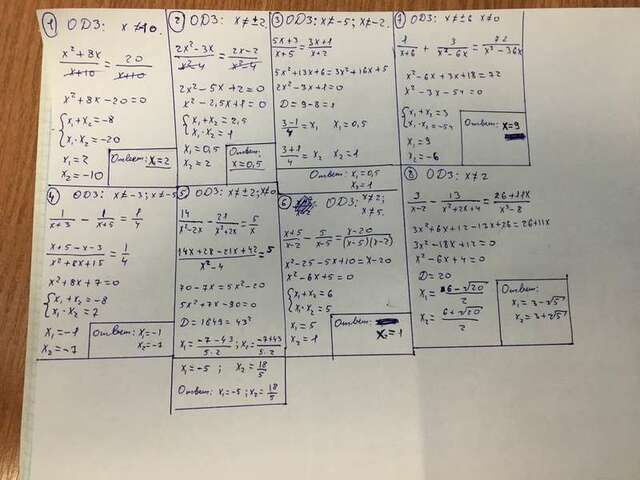 ① ОДЗ: x ≠ -10.
x²+8x / x+10 = 20 / x+10
x²+8x-20=0
{ x₁+x₂=-8
x₁·x₂=-20
x₁=2
x₂=-10
Ответ: x=2
② ОДЗ: x≠±2
2x²-3x / x²-4 = 2x-2 / x²-4
2x²-5x+2=0
x²-2,5x+1=0
{ x₁+x₂=2,5
x₁·x₂=1
x₁=0,5
x₂=2
Ответ: x=0,5
③ ОДЗ: x≠-5; x≠-2.
5x+3 / x+5 = 3x+1 / x+2
5x²+13x+6=3x²+16x+5
2x²-3x+1=0
D=9-8=1
3-1 / 4 = x₁ x₁=0,5
3+1 / 4 = x₂ x₂=1
Ответ: x₁=0,5
x₂=1
④ ОДЗ: x≠-3; x≠-5
1 / x+3 - 1 / x+5 = 1 / 4
x+5-x-3 / x²+8x+15 = 1 / 4
x²+8x+7=0
{ x₁+x₂=-8
x₁·x₂=7
x₁=-1
x₂=-7
Ответ: x₁=-1
x₂=-7
⑤ ОДЗ: x≠±2; x≠0
14 / x²-2x - 21 / x²+2x = 5 / x
14x+28-21x+42 / x²-4 = 5
70-7x=5x²-20
5x²+7x-90=0
D=1849=43²
x₁ = -7-43 / 5·2 ; x₂ = -7+43 / 5·2
x₁=-5; x₂ = 18 / 5
Ответ: x₁=-5; x₂ = 18 / 5
⑥ ОДЗ: x≠2; x≠5.
x+5 / x-2 - 5 / x-5 = x-20 / (x-5)(x-2)
x²-25-5x+10=x-20
x²-6x+5=0
{ x₁+x₂=6
x₁·x₂=5
x₁=5
x₂=1
Ответ: x=1
⑦ ОДЗ: x≠±6 x≠0
1 / x+6 + 3 / x²-6x = 72 / x³-36x
x²-6x+3x+18=72
x²-3x-54=0
{ x₁+x₂=3
x₁·x₂=-54
x₁=9
x₂=-6
Ответ: x=9
⑧ ОДЗ: x≠2
3 / x-2 - 13 / x²+2x+4 = 26+11x / x³-8
3x²+6x+12-13x+26=26+11x
3x²-18x+12=0
x²-6x+4=0
D=20
x₁ = 6-√20 / 2
x₂ = 6+√20 / 2
Ответ:
x₁=3-√5
x₂=3+√5